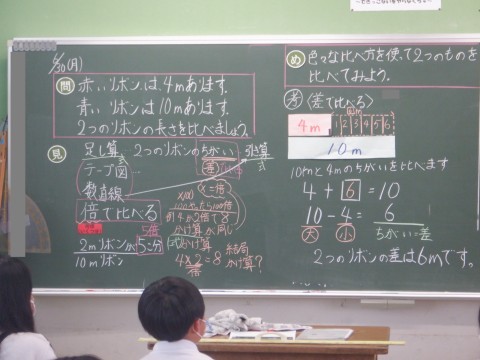 6/30(月)
問 赤いリボンは4mあります。
青いリボンは10mあります。
2つのリボンの長さを比べましょう。
見 足し算 2つのリボンのちがい 引き算
テープ図
数直線
倍で比べる
5倍
2mリボンが5こ分
10mリボン
(差)
(x=倍)
4が2倍で8
かけ算
4×2=8
倍
結局
かけ算?
め 色々な比べ方を使って2つのものを
比べてみよう。
考 〈差で比べる〉
6m
4m 1 2 3 4 5 6
10m
10mと4mのちがいを比べます
4+6=10
10-4=6
大 小 ちがい=差
2つのリボンの差は6mです。